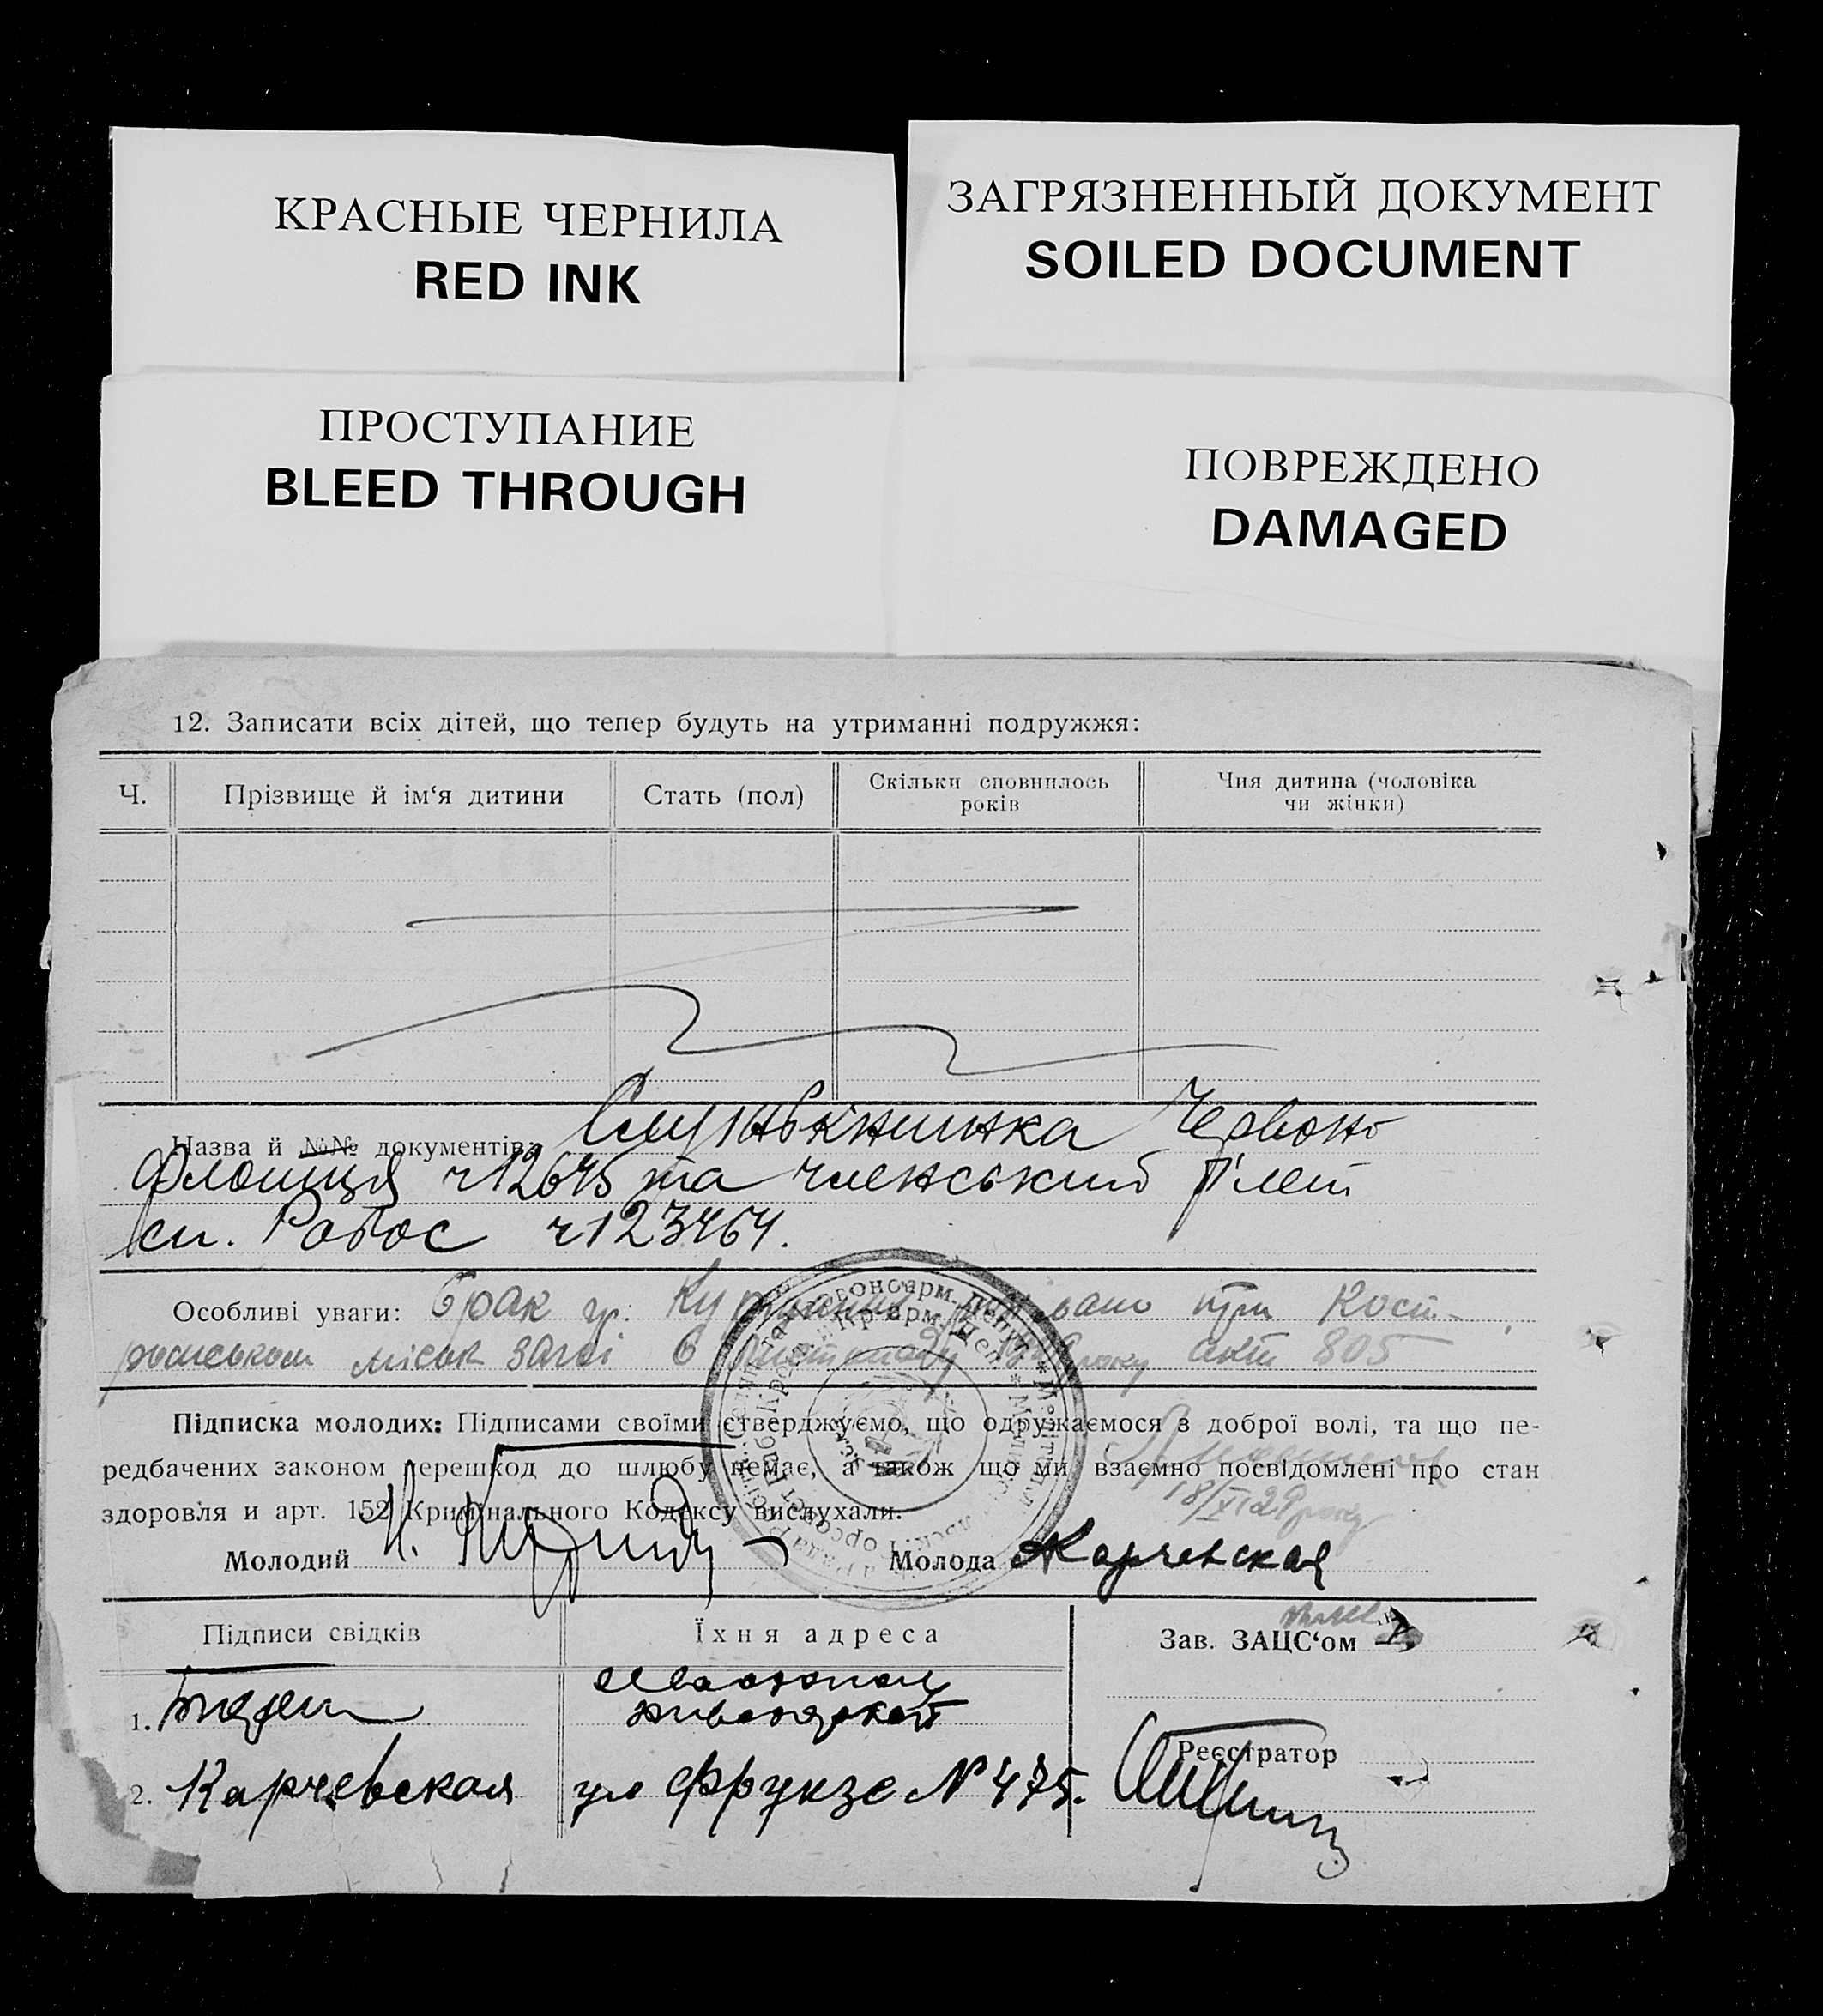 КРАСНЫЕ ЧЕРНИЛА
RED INK
ЗАГРЯЗНЕННЫЙ ДОКУМЕНТ
SOILED DOCUMENT
ПРОСТУПАНИЕ
BLEED THROUGH
ПОВРЕЖДЕНО
DAMAGED
12. Записати всіх дітей, що тепер будуть на утриманні подружжя:
Ч. Прізвище й ім‘я дитини Стать (пол) Скільки сповнилось років Чия дитина (чоловіка чи жінки)
Назва й №№ документів: Служкнижка Червоно
флотця ч12645 та членський білет
сп. Робос ч123464.
Особливі уваги: брак гр. вано при Кост-
міськ загсі 6 листопаду року акт 805
Підписка молодих: Підписами своїми стверджуємо, що одружаємося з доброї волі, та що пе-
редбачених законом перешкод до шлюбу немає, а також що ми взаємно посвідомлені про стан
здоровля и арт. 152 Кримінального Кодексу вислухали.
18/XI 29 року
Молодий Молода Карчевская
Підписи свідків Їхня адреса Зав. ЗАЦС‘ом
1.
Реєстратор
2. Карчевская ул Фрунзе № 475.